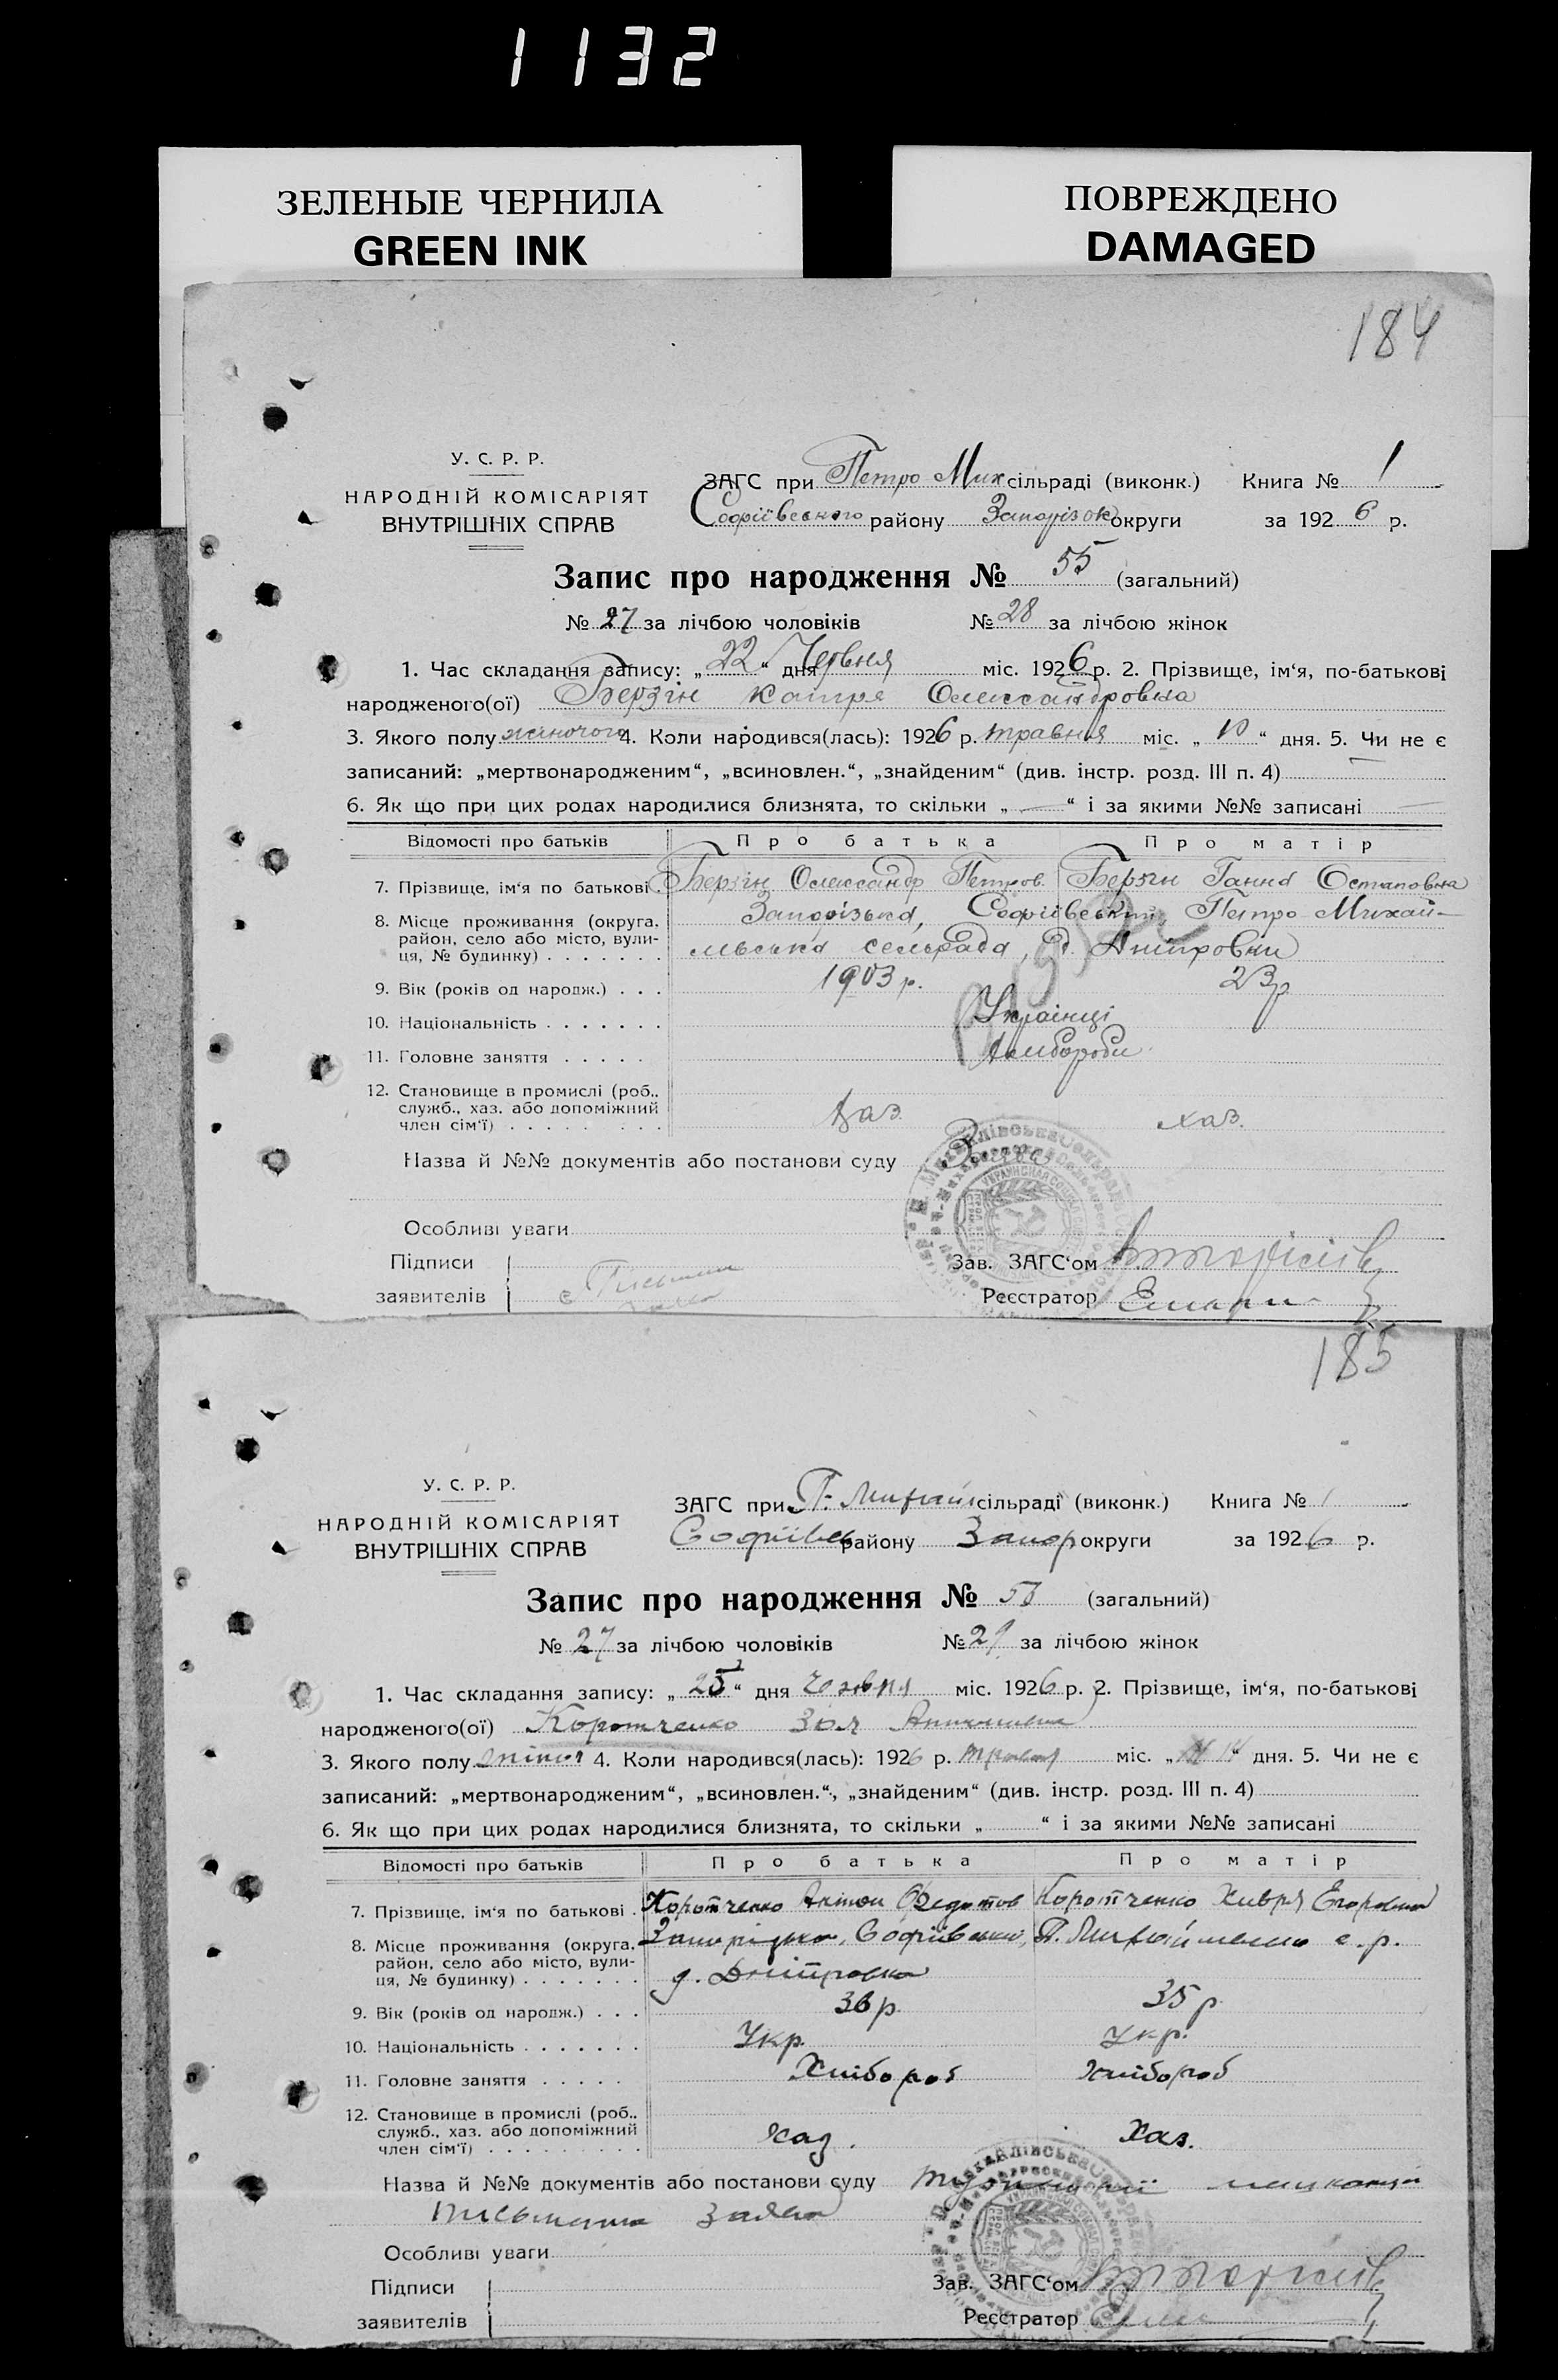 1132
ЗЕЛЕНЫЕ ЧЕРНИЛА
GREEN INK
ПОВРЕЖДЕНО
DAMAGED
184
У. С. Р. Р.
НАРОДНІЙ КОМІСАРІЯТ
ВНУТРІШНІХ СПРАВ
ЗАГС при Петро Мих сільраді (виконк.) Книга № 1
Софіївського району Запорізок округи за 1926 р.
Запис про народження № 55 (загальний)
№ 27 за лічбою чоловіків № 28 за лічбою жінок
1. Час складання запису: „22“ дня Червня міс. 1926 р. 2. Прізвище, ім‘я, по-батькові
народженого(ої) Берзін Катря Олександровна
3. Якого полу жіночого 4. Коли народився(лась): 1926 р. травня міс. „10“ дня. 5. Чи не є
записаний: „мертвонародженим“, „всиновлен.“, „знайденим“ (див. інстр. розд. III п. 4)
6. Як що при цих родах народилися близнята, то скільки „—“ і за якими №№ записані —
Відомості про батьків Про батька Про матір
7. Прізвище, ім‘я по батькові Берзін Олександр Петров. Берзін Ганна Остаповна
8. Місце проживання (округа, район, село або місто, вулиця, № будинку) Запорізька, Софіївський, Петро-Михай-
лвська сельрада, д. Дніпровки
9. Вік (років од народж.) 1903 р. 23 р
10. Національність Українці
11. Головне заняття Хлібороби
12. Становище в промислі (роб., служб., хаз. або допоміжний член сім‘ї) хаз. хаз.
Назва й №№ документів або постанови суду Заява
Особливі уваги
Підписи
заявителів є Письмен заява
Зав. ЗАГС‘ом
Реєстратор
185
У. С. Р. Р.
НАРОДНІЙ КОМІСАРІЯТ
ВНУТРІШНІХ СПРАВ
ЗАГС при П. Михай сільраді (виконк.) Книга № 1
Софіївсь району Запор округи за 1926 р.
Запис про народження № (загальний)
№ 27 за лічбою чоловіків № 29 за лічбою жінок
1. Час складання запису: „25“ дня Червня міс. 1926 р. 2. Прізвище, ім‘я, по-батькові
народженого(ої) Коротченко Зоя
3. Якого полу жіноч 4. Коли народився(лась): 1926 р. травня міс. „14“ дня. 5. Чи не є
записаний: „мертвонародженим“, „всиновлен.“, „знайденим“ (див. інстр. розд. III п. 4)
6. Як що при цих родах народилися близнята, то скільки „ “ і за якими №№ записані
Відомості про батьків Про батька Про матір
7. Прізвище, ім‘я по батькові Коротченко Антон Федотов Коротченко Хивря Егоровна
8. Місце проживання (округа, район, село або місто, вулиця, № будинку) Запорізька, Софіївський, П. Михайлівська с. р.
д. Дніпровка
9. Вік (років од народж.) 36 р. 35 р.
10. Національність Укр. Укр.
11. Головне заняття Хлібороб хлібороб
12. Становище в промислі (роб., служб., хаз. або допоміжний член сім‘ї) хаз. Хаз.
Назва й №№ документів або постанови суду
письменна заява
Особливі уваги
Підписи
заявителів
Зав. ЗАГС‘ом
Реєстратор